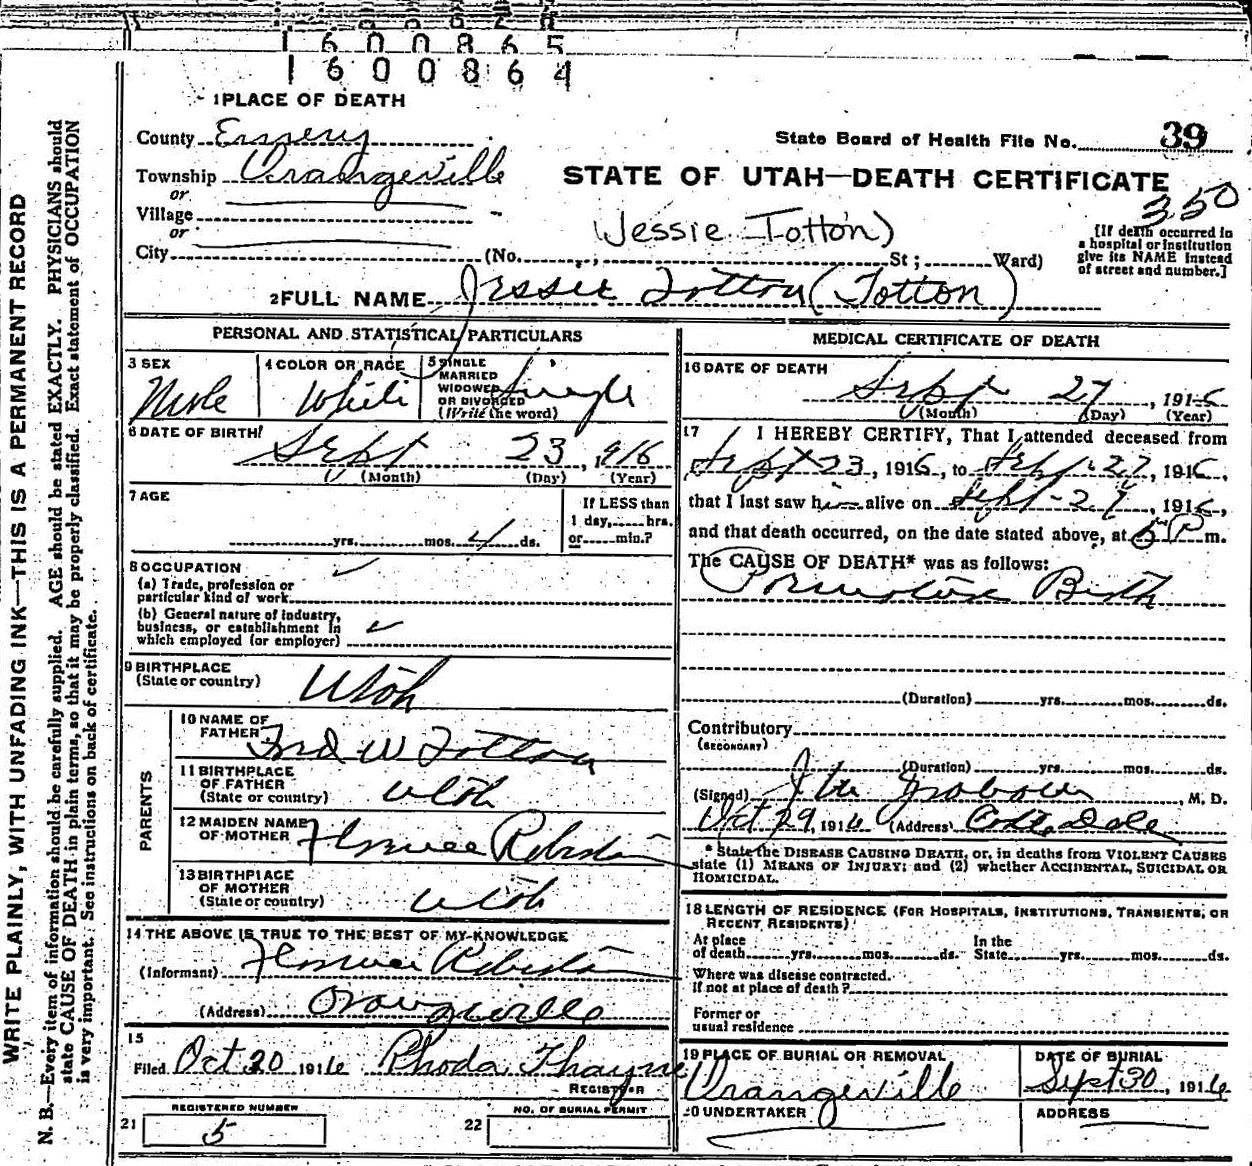 1600865
1600864
1 PLACE OF DEATH
County Emery
State Board of Health File No. 39
Township Orangeville
or
STATE OF UTAH—DEATH CERTIFICATE
350
Village
or
Jessie Totton)
[If death occurred in a hospital or institution give its NAME instead of street and number.]
City (No. , St ; Ward)
2 FULL NAME Jessie Totton (Totton)
PERSONAL AND STATISTICAL PARTICULARS
3 SEX
Male
4 COLOR OR RACE
White
5 SINGLE
MARRIED
WIDOWED
OR DIVORCED
(Write the word)
Single
6 DATE OF BIRTH
Sept 23, 916
(Month) (Day) (Year)
7 AGE
yrs. mos. 4 ds.
If LESS than
1 day, hrs.
or min.?
8 OCCUPATION
(a) Trade, profession or
particular kind of work
(b) General nature of industry,
business, or establishment in
which employed (or employer)
9 BIRTHPLACE
(State or country)
Utah
PARENTS
10 NAME OF
FATHER
Fred W Totton
11 BIRTHPLACE
OF FATHER
(State or country)
Utah
12 MAIDEN NAME
OF MOTHER
Florence Robertson
13 BIRTHPLACE
OF MOTHER
(State or country)
Utah
14 THE ABOVE IS TRUE TO THE BEST OF MY KNOWLEDGE
(Informant) Florence Robertson
(Address) Orangeville
15
Filed Oct 20 1916 Rhoda Thayne
REGISTRAR
21
REGISTERED NUMBER
5
22
NO. OF BURIAL PERMIT
MEDICAL CERTIFICATE OF DEATH
16 DATE OF DEATH
Sept 27, 1916
(Month) (Day) (Year)
17 I HEREBY CERTIFY, That I attended deceased from
Sept 23, 1916, to Sept. 27, 1916,
that I last saw him alive on Sept-27, 1916,
and that death occurred, on the date stated above, at 5 P m.
The CAUSE OF DEATH* was as follows:
Premature Birth
(Duration) yrs. mos. ds.
Contributory
(SECONDARY)
(Duration) yrs. mos. ds.
(Signed) , M. D.
Oct 29, 1916 (Address) Castle Dale
* State the DISEASE CAUSING DEATH, or, in deaths from VIOLENT CAUSES
state (1) MEANS OF INJURY; and (2) whether ACCIDENTAL, SUICIDAL OR
HOMICIDAL.
18 LENGTH OF RESIDENCE (FOR HOSPITALS, INSTITUTIONS, TRANSIENTS, OR
RECENT RESIDENTS)
At place
of death yrs. mos. ds.
In the
State yrs. mos. ds.
Where was disease contracted.
If not at place of death?
Former or
usual residence
19 PLACE OF BURIAL OR REMOVAL
Orangeville
DATE OF BURIAL
Sept 30, 1916
20 UNDERTAKER
ADDRESS
WRITE PLAINLY, WITH UNFADING INK—THIS IS A PERMANENT RECORD
N. B.—Every item of information should be carefully supplied. AGE should be stated EXACTLY. PHYSICIANS should
state CAUSE OF DEATH in plain terms, so that it may be properly classified. Exact statement of OCCUPATION
is very important. See instructions on back of certificate.